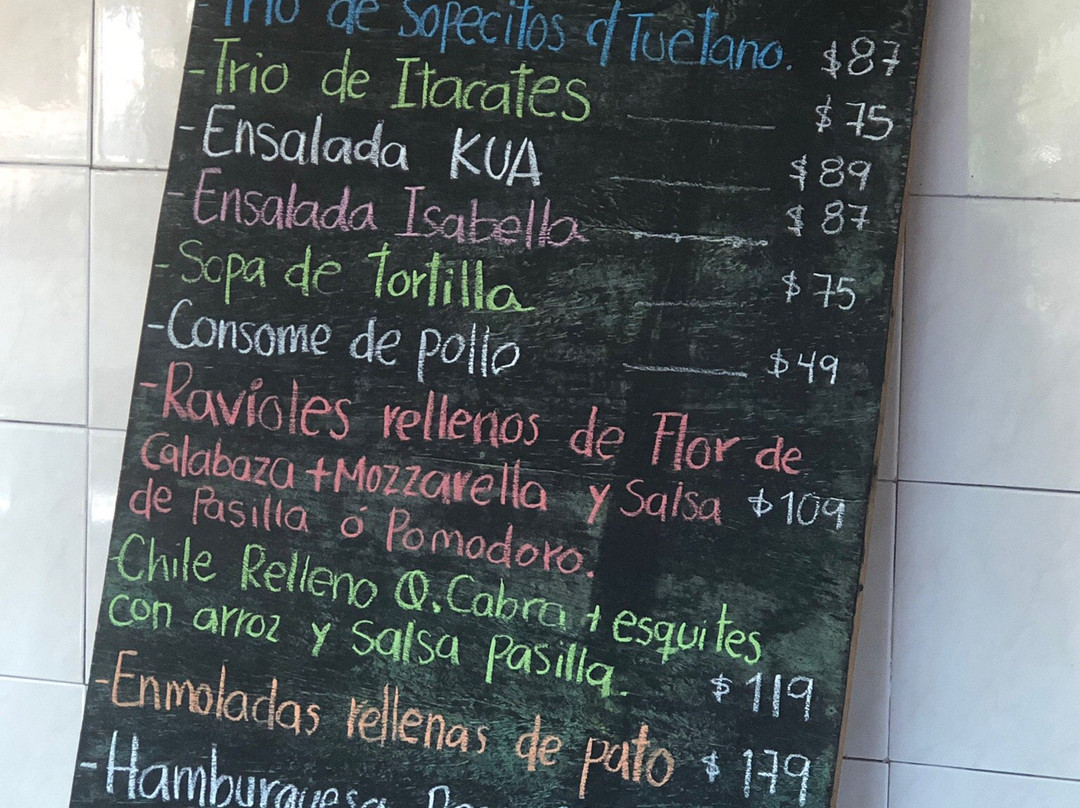 -Trio de Sopecitos d Tuétano. $87
-Trio de Itacates ____ $75
-Ensalada KUA ____ $89
-Ensalada Isabella ____ $87
-Sopa de tortilla ____ $75
-Consome de pollo ____ $49
-Ravioles rellenos de Flor de
Calabaza + Mozzarella y Salsa $109
de Pasilla ó Pomodoro.
-Chile Relleno Q. Cabra + esquites
con arroz y Salsa pasilla. $119
-Enmoladas rellenas de pato $179
-Hamburguesa